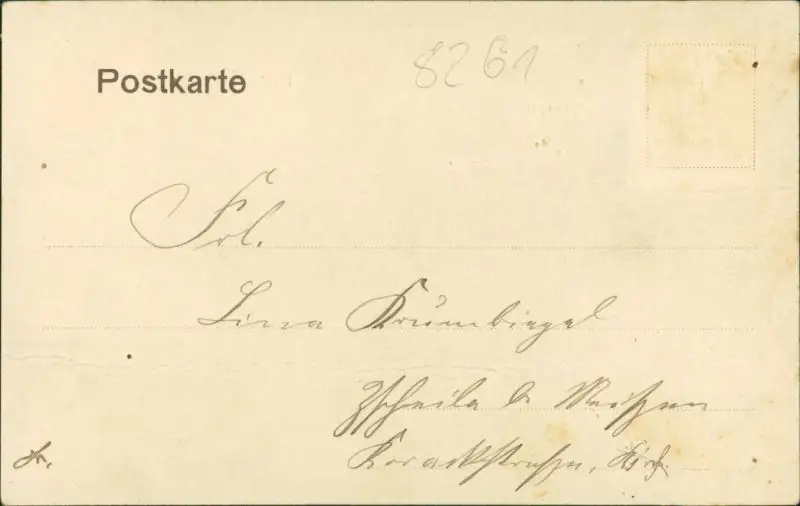 Postkarte
8261
Frl.
Lina Krumbiegel
Zscheila b. Meißen
fr.